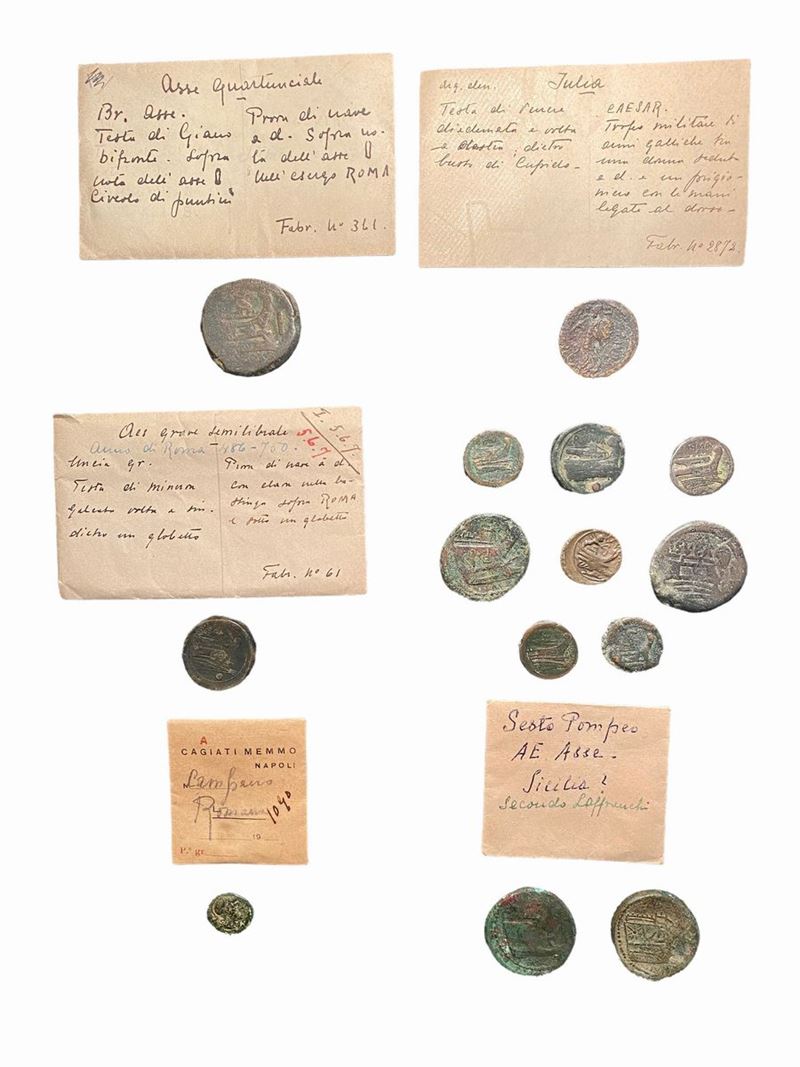 Asse Quartunciale
Br. Asse.
Testa di Giano
bifronte. Sopra
nota dell'asse I
Circolo di puntini
Prora di nave
a d. Sopra no-
ta dell'asse I
nell'esergo ROMA
Fabr. Nº 361.
arg. den.
Julia
Testa di Venere
diademata e volta
a destra; dietro
busto di Cupido-
CAESAR.
Trofeo militare di
armi galliche tra
una donna seduta
a d. e un prigio-
niero con le mani
legate al dorso-
Fabr. Nº 2872.
I. 5.6.7.
5.6.7
Aes grave semilibrale
Anno di Roma 486-700.
Uncia gr.
Testa di Minerva
galeata volta a sin.
dietro un globetto
Prora di nave a d.
con clava nella
sopra ROMA
e sotto un globetto
Fabr. Nº 61
A
CAGIATI MEMMO
NAPOLI
N
Campano
Romana
1090
19
P.º gr.
Sesto Pompeo
AE Asse-
Sicilia?
Secondo Laffranchi